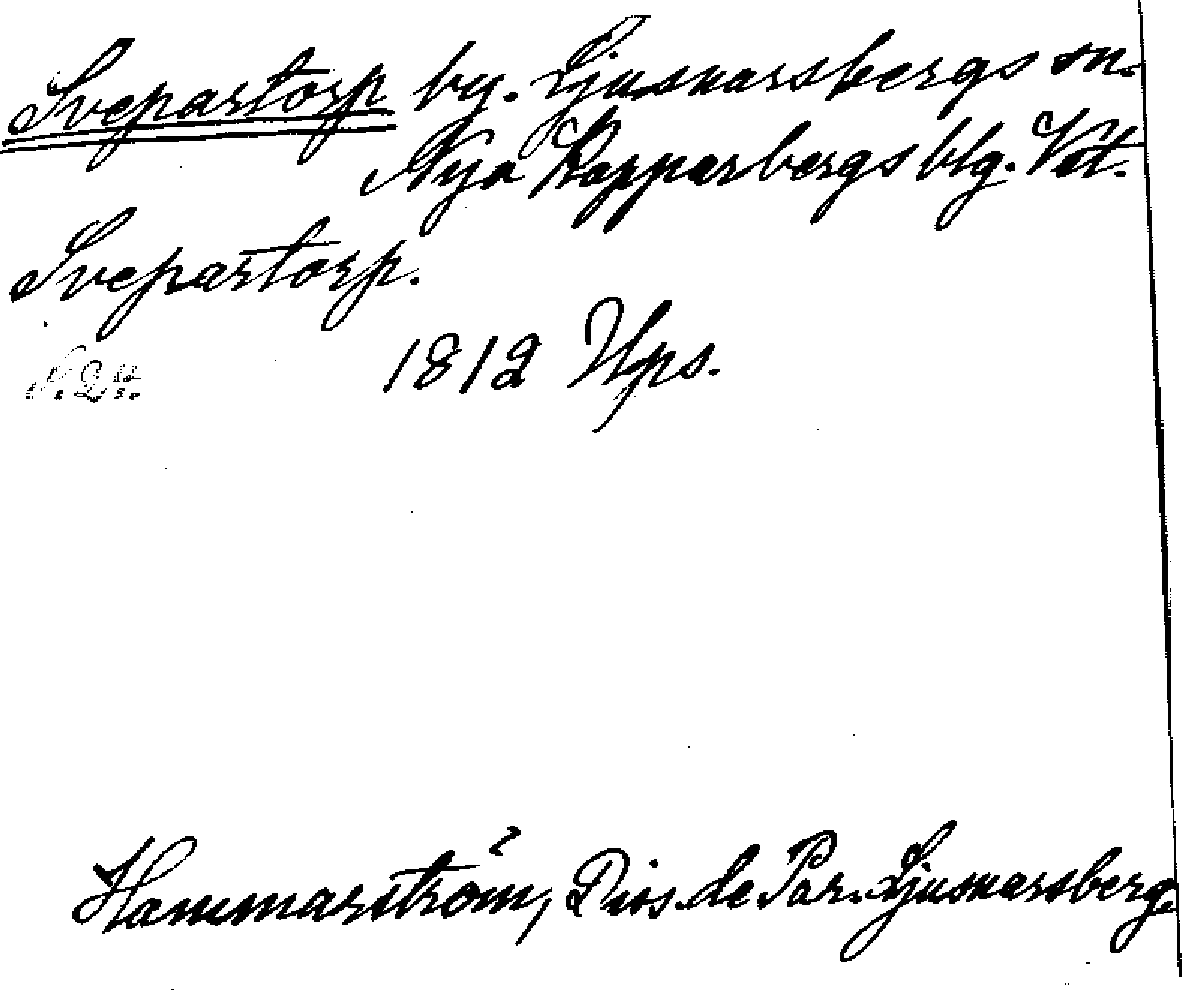 Svepartorp by. Ljusnarsbergs sn.
Nya Kopparbergs blg. Vstm.
Svepartorp.
1812 Ups.
Hammarström, Diss. de Par. Ljusnarsberg.